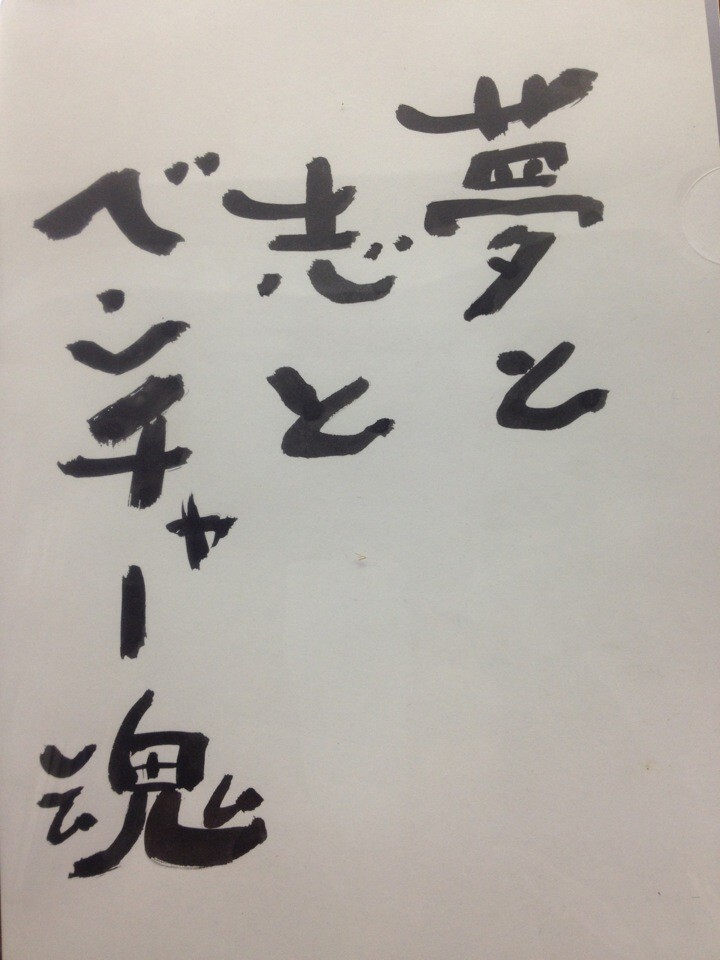 夢と
志と
ベンチャー魂